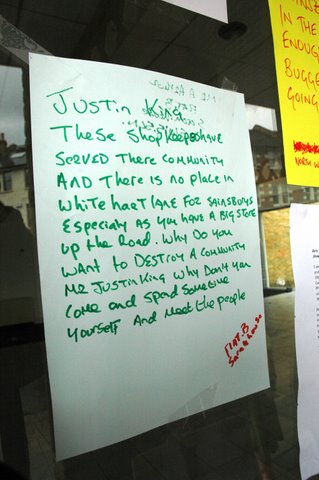 Justin King
These shopkeepers have
SERVED THERE COMMUNITY
AND There is no place in
white hart LANE FOR SAINSBURYS
Especialy As you HAVE A BIG STORE
up the Road. Why Do you
WANT to DESTROY A COMMUNITY
MR JUSTIN KING Why Don't you
Come and spend sometime
yourself And meet the people
FLAT.B
IN THE
ENOUG
BUGGE
GOING